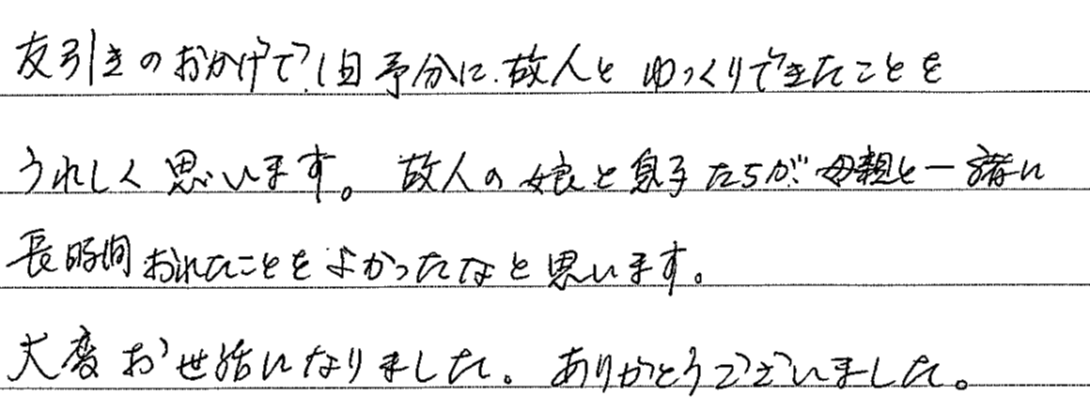 友引きのおかげで、1日予分に、故人とゆっくりできたことを
うれしく思います。故人の娘と息子たちが母親と一緒に
長時間おれたことをよかったなと思います。
大変お世話になりました。ありがとうございました。